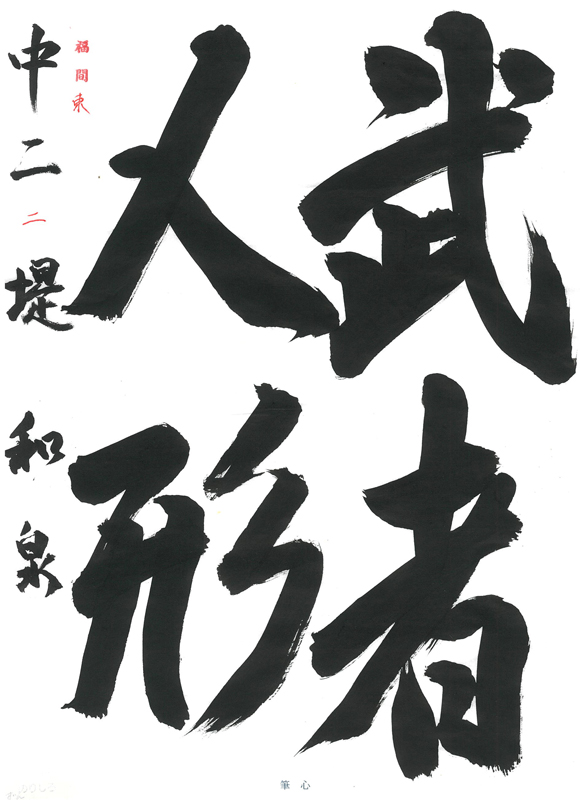 武者
人形
福間東
中二 二 堤 和泉
心筆